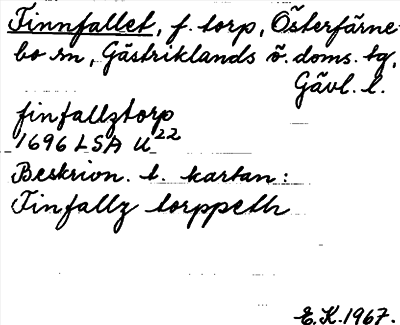 Finnfallet, f. torp, Österfärne-
bo sn, Gästriklands ö. doms. tg,
Gävl. l.
finfallztorp
1696 LSA U22
Beskrivn. t. kartan:
Finfallz torppeth
E.K. 1967.